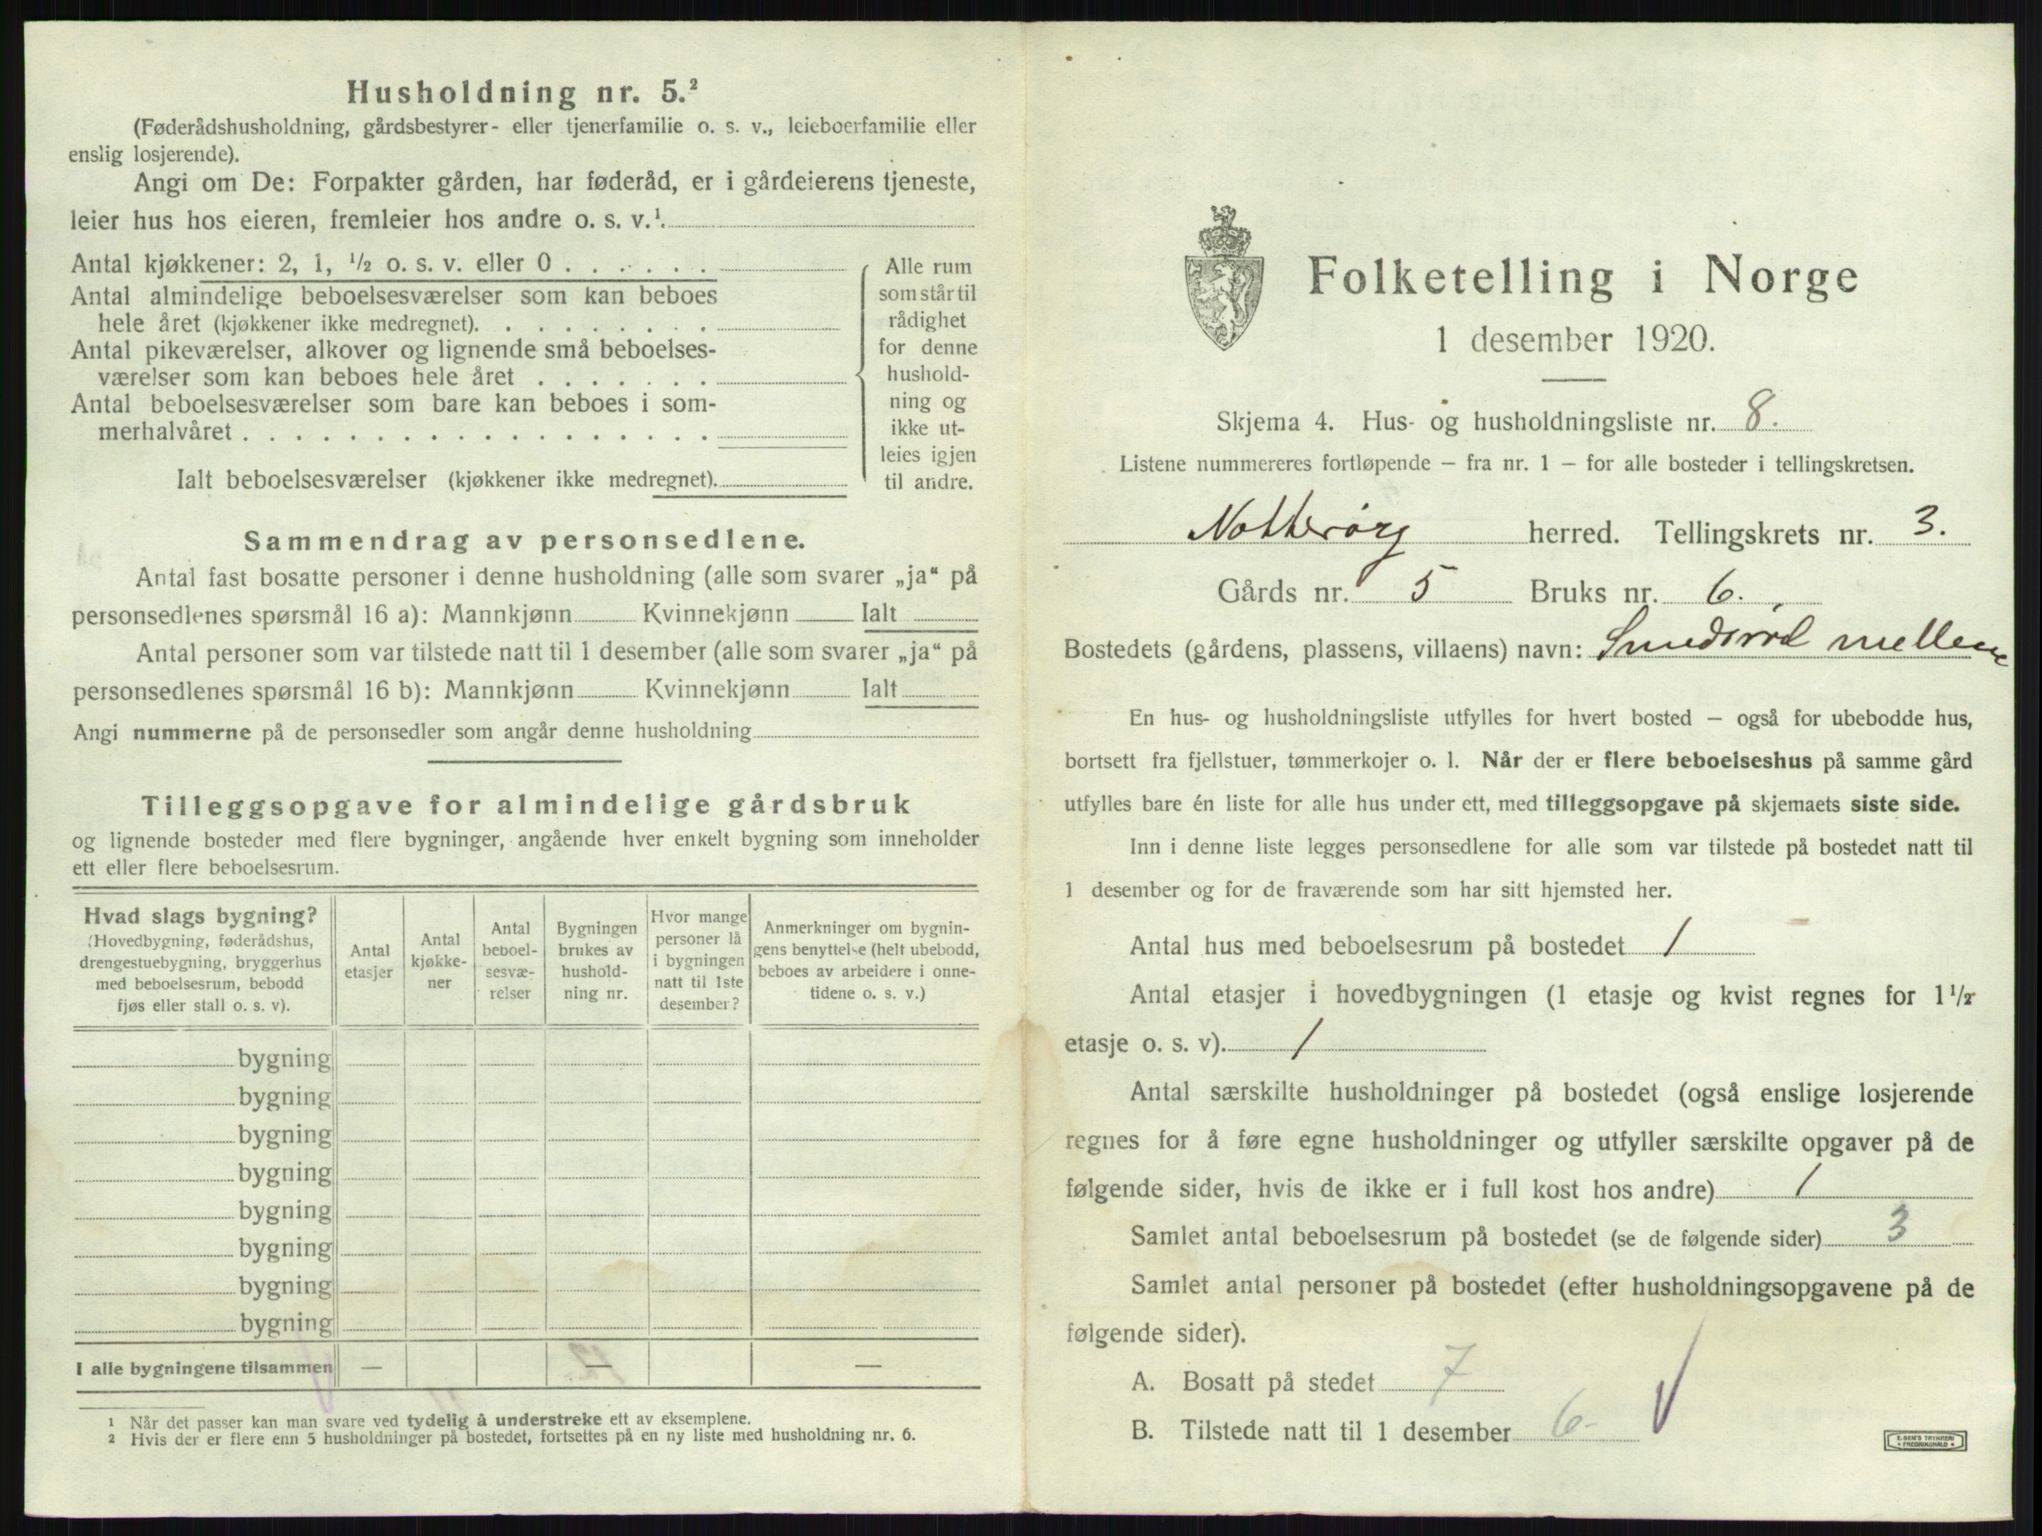 Husholdning nr. 5.²
(Føderådshusholdning, gårdsbestyrer- eller tjenerfamilie o. s. v., leieboerfamilie eller
enslig losjerende).
Angi om De: Forpakter gården, har føderåd, er i gårdeierens tjeneste,
leier hus hos eieren, fremleier hos andre o. s. v.¹
Antal kjøkkener: 2, 1, ½ o. s. v. eller 0 . . . . . .
Antal almindelige beboelsesværelser som kan beboes
hele året (kjøkkener ikke medregnet). . . . . . . . .
Antal pikeværelser, alkover og lignende små beboelses-
værelser som kan beboes hele året . . . . . . .
Antal beboelsesværelser som bare kan beboes i som-
merhalvåret . . . . . . . . . . . . . . . . . .
Ialt beboelsesværelser (kjøkkener ikke medregnet).
Alle rum
som står til
rådighet
for denne
hushold-
ning og
ikke ut-
leies igjen
til andre.
Sammendrag av personsedlene.
Antal fast bosatte personer i denne husholdning (alle som svarer „ja“ på
personsedlenes spørsmål 16 a): Mannkjønn Kvinnekjønn Ialt
Antal personer som var tilstede natt til 1 desember (alle som svarer „ja“ på
personsedlenes spørsmål 16 b): Mannkjønn Kvinnekjønn Ialt
Angi nummerne på de personsedler som angår denne husholdning
Tilleggsopgave for almindelige gårdsbruk
og lignende bosteder med flere bygninger, angående hver enkelt bygning som inneholder
ett eller flere beboelsesrum.
Hvad slags bygning?
(Hovedbygning, føderådshus,
drengestuebygning, bryggerhus
med beboelsesrum, bebodd
fjøs eller stall o. s. v).
Antal
etasjer
Antal
kjøkke-
ner
Antal
beboel-
sesvæ-
relser
Bygningen
brukes av
hushold-
ning nr.
Hvor mange
personer lå
i bygningen
natt til 1ste
desember?
Anmerkninger om bygnin-
gens benyttelse (helt ubebodd,
beboes av arbeidere i onne-
tidene o. s. v.)
bygning
bygning
bygning
bygning
bygning
bygning
bygning
bygning
I alle bygningene tilsammen — — —
¹ Når det passer kan man svare ved tydelig å understreke ett av eksemplene.
² Hvis der er flere enn 5 husholdninger på bostedet, fortsettes på en ny liste med husholdning nr. 6.
Folketelling i Norge
1 desember 1920.
Skjema 4. Hus- og husholdningsliste nr. 8.
Listene nummereres fortløpende – fra nr. 1 – for alle bosteder i tellingskretsen.
Nøtterøy herred. Tellingskrets nr. 3.
Gårds nr. 5 Bruks nr. 6.
Bostedets (gårdens, plassens, villaens) navn: Smedsrød mellem
En hus- og husholdningsliste utfylles for hvert bosted – også for ubebodde hus,
bortsett fra fjellstuer, tømmerkojer o. l. Når der er flere beboelseshus på samme gård
utfylles bare én liste for alle hus under ett, med tilleggsopgave på skjemaets siste side.
Inn i denne liste legges personsedlene for alle som var tilstede på bostedet natt til
1 desember og for de fraværende som har sitt hjemsted her.
Antal hus med beboelsesrum på bostedet 1
Antal etasjer i hovedbygningen (1 etasje og kvist regnes for 1½
etasje o. s. v). 1
Antal særskilte husholdninger på bostedet (også enslige losjerende
regnes for å føre egne husholdninger og utfyller særskilte opgaver på de
følgende sider, hvis de ikke er i full kost hos andre) 1
Samlet antal beboelsesrum på bostedet (se de følgende sider) 3
Samlet antal personer på bostedet (efter husholdningsopgavene på de
følgende sider).
A. Bosatt på stedet 7
B. Tilstede natt til 1 desember 6
E. SEM'S TRYKKERI
FREDRIKSHALD